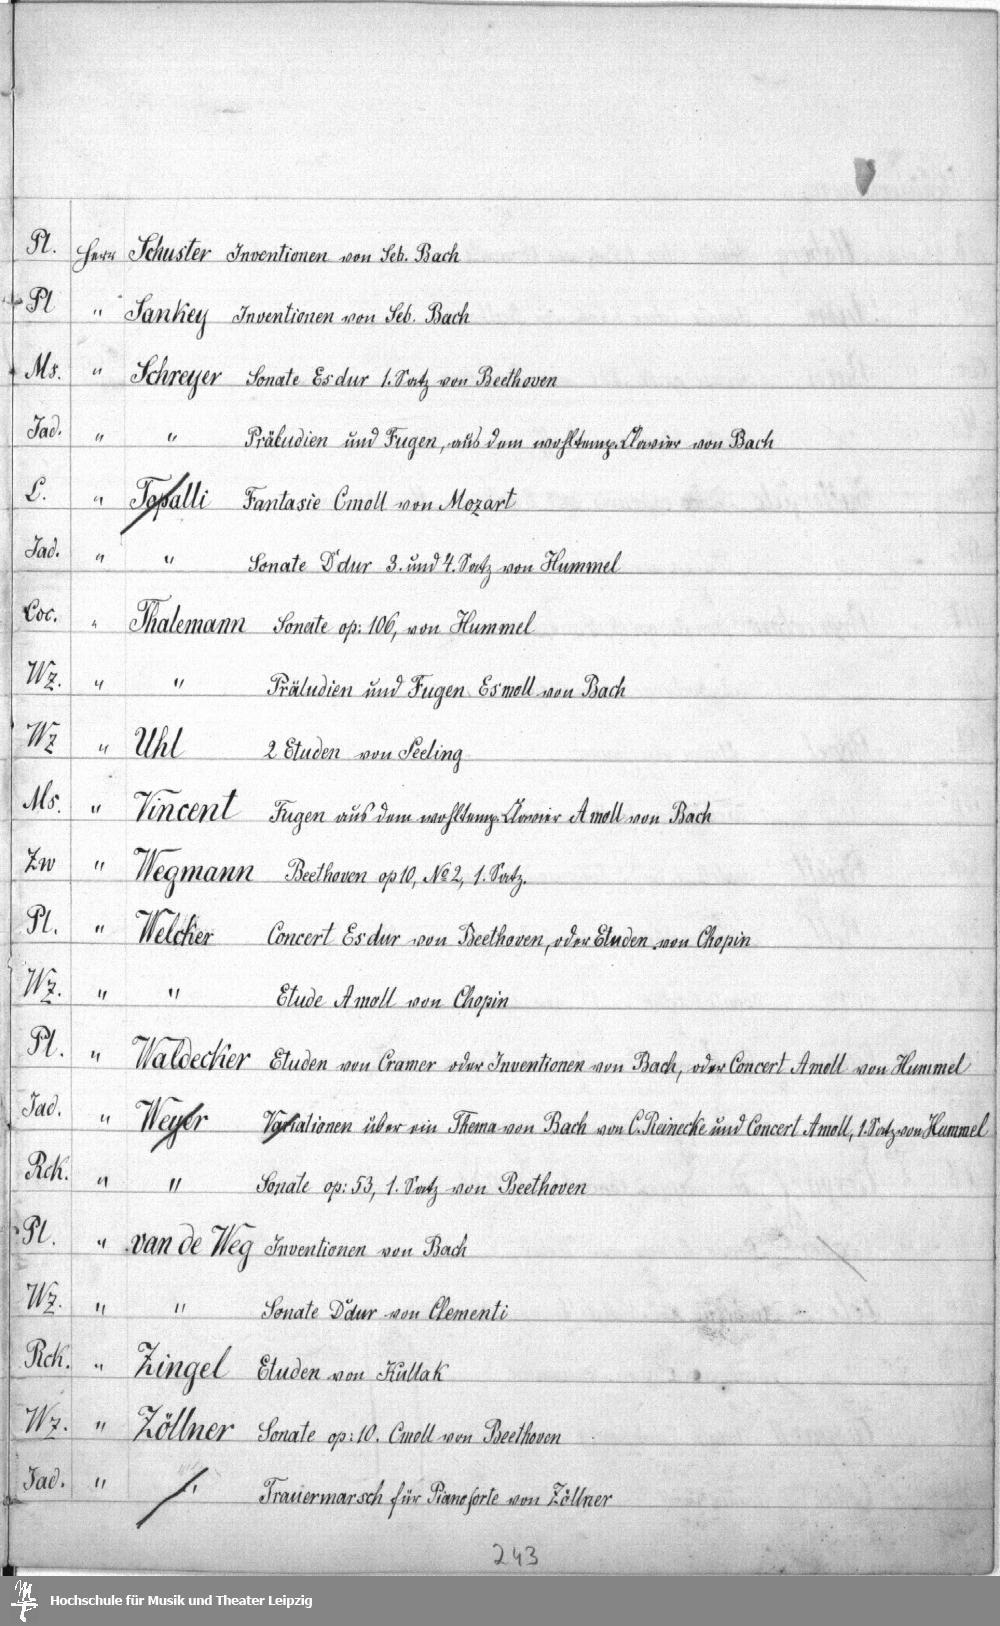 Pl. Herr Schuster Inventionen von Seb. Bach
Pl " Sankey Inventionen von Seb. Bach
Ms. " Schreyer Sonate Esdur 1. Satz von Beethoven
Jad. " " Präludien und Fugen, aus dem wohltemp. Clavier von Bach
C. " Topalli Fantasie Cmoll von Mozart
Jad. " " Sonate Ddur 3. und 4. Satz von Hummel
Coc. " Thalemann Sonate op: 106, von Hummel
Wz. " " Präludien und Fugen Esmoll von Bach
Wz " Uhl 2 Etuden von Seeling
Ms. " Vincent Fugen aus dem wohltemp. Clavier Amoll von Bach
Zw " Wegmann Beethoven op 10, No 2, 1. Satz.
Pl. " Welcker Concert Esdur von Beethoven, oder Etuden von Chopin
Wz. " " Etude Amoll von Chopin
Pl. " Waldecker Etuden von Cramer oder Inventionen von Bach, oder Concert Amoll von Hummel
Jad. " Weyer Variationen über ein Thema von Bach von C. Reinecke und Concert Amoll, 1. Satz von Hummel
Rck. " " Sonate op: 53, 1. Satz von Beethoven
Pl. " van de Weg Inventionen von Bach
Wz. " " Sonate Ddur von Clementi
Rck. " Zingel Etuden von Kullak
Wz. " Zöllner Sonate op: 10. Cmoll von Beethoven
Jad. " " Trauermarsch für Pianoforte von Zöllner
243
Hochschule für Musik und Theater Leipzig